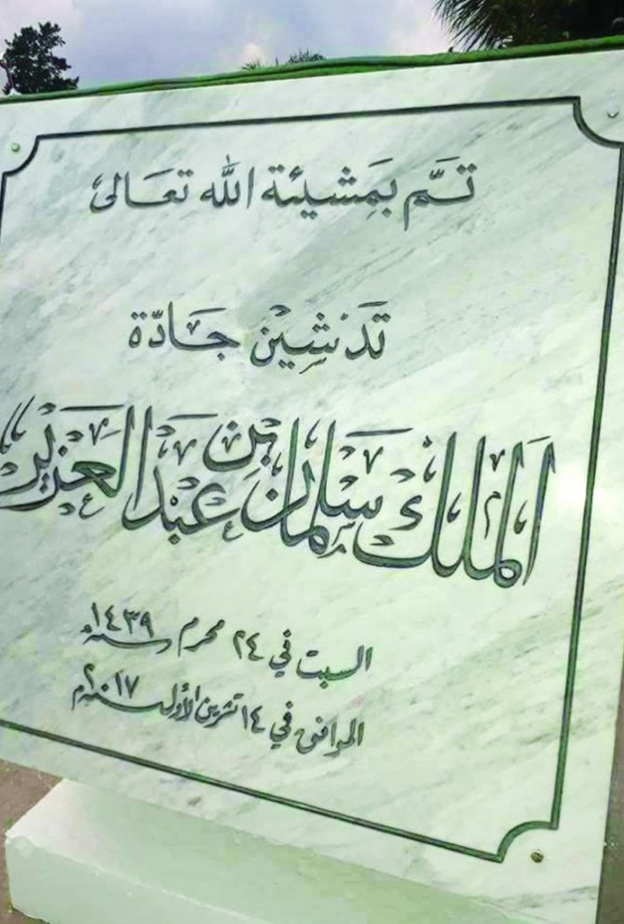 تَمّ بِمَشيئة الله تعَالى
تَدشين جَادّة
المَلك سَلمان بن عَبد العَزيز
السبت في ٢٤ محرم ١٤٣٩ سنة هـ
الموافق في ١٤ تشرين الأول ٢٠١٧ سنة م